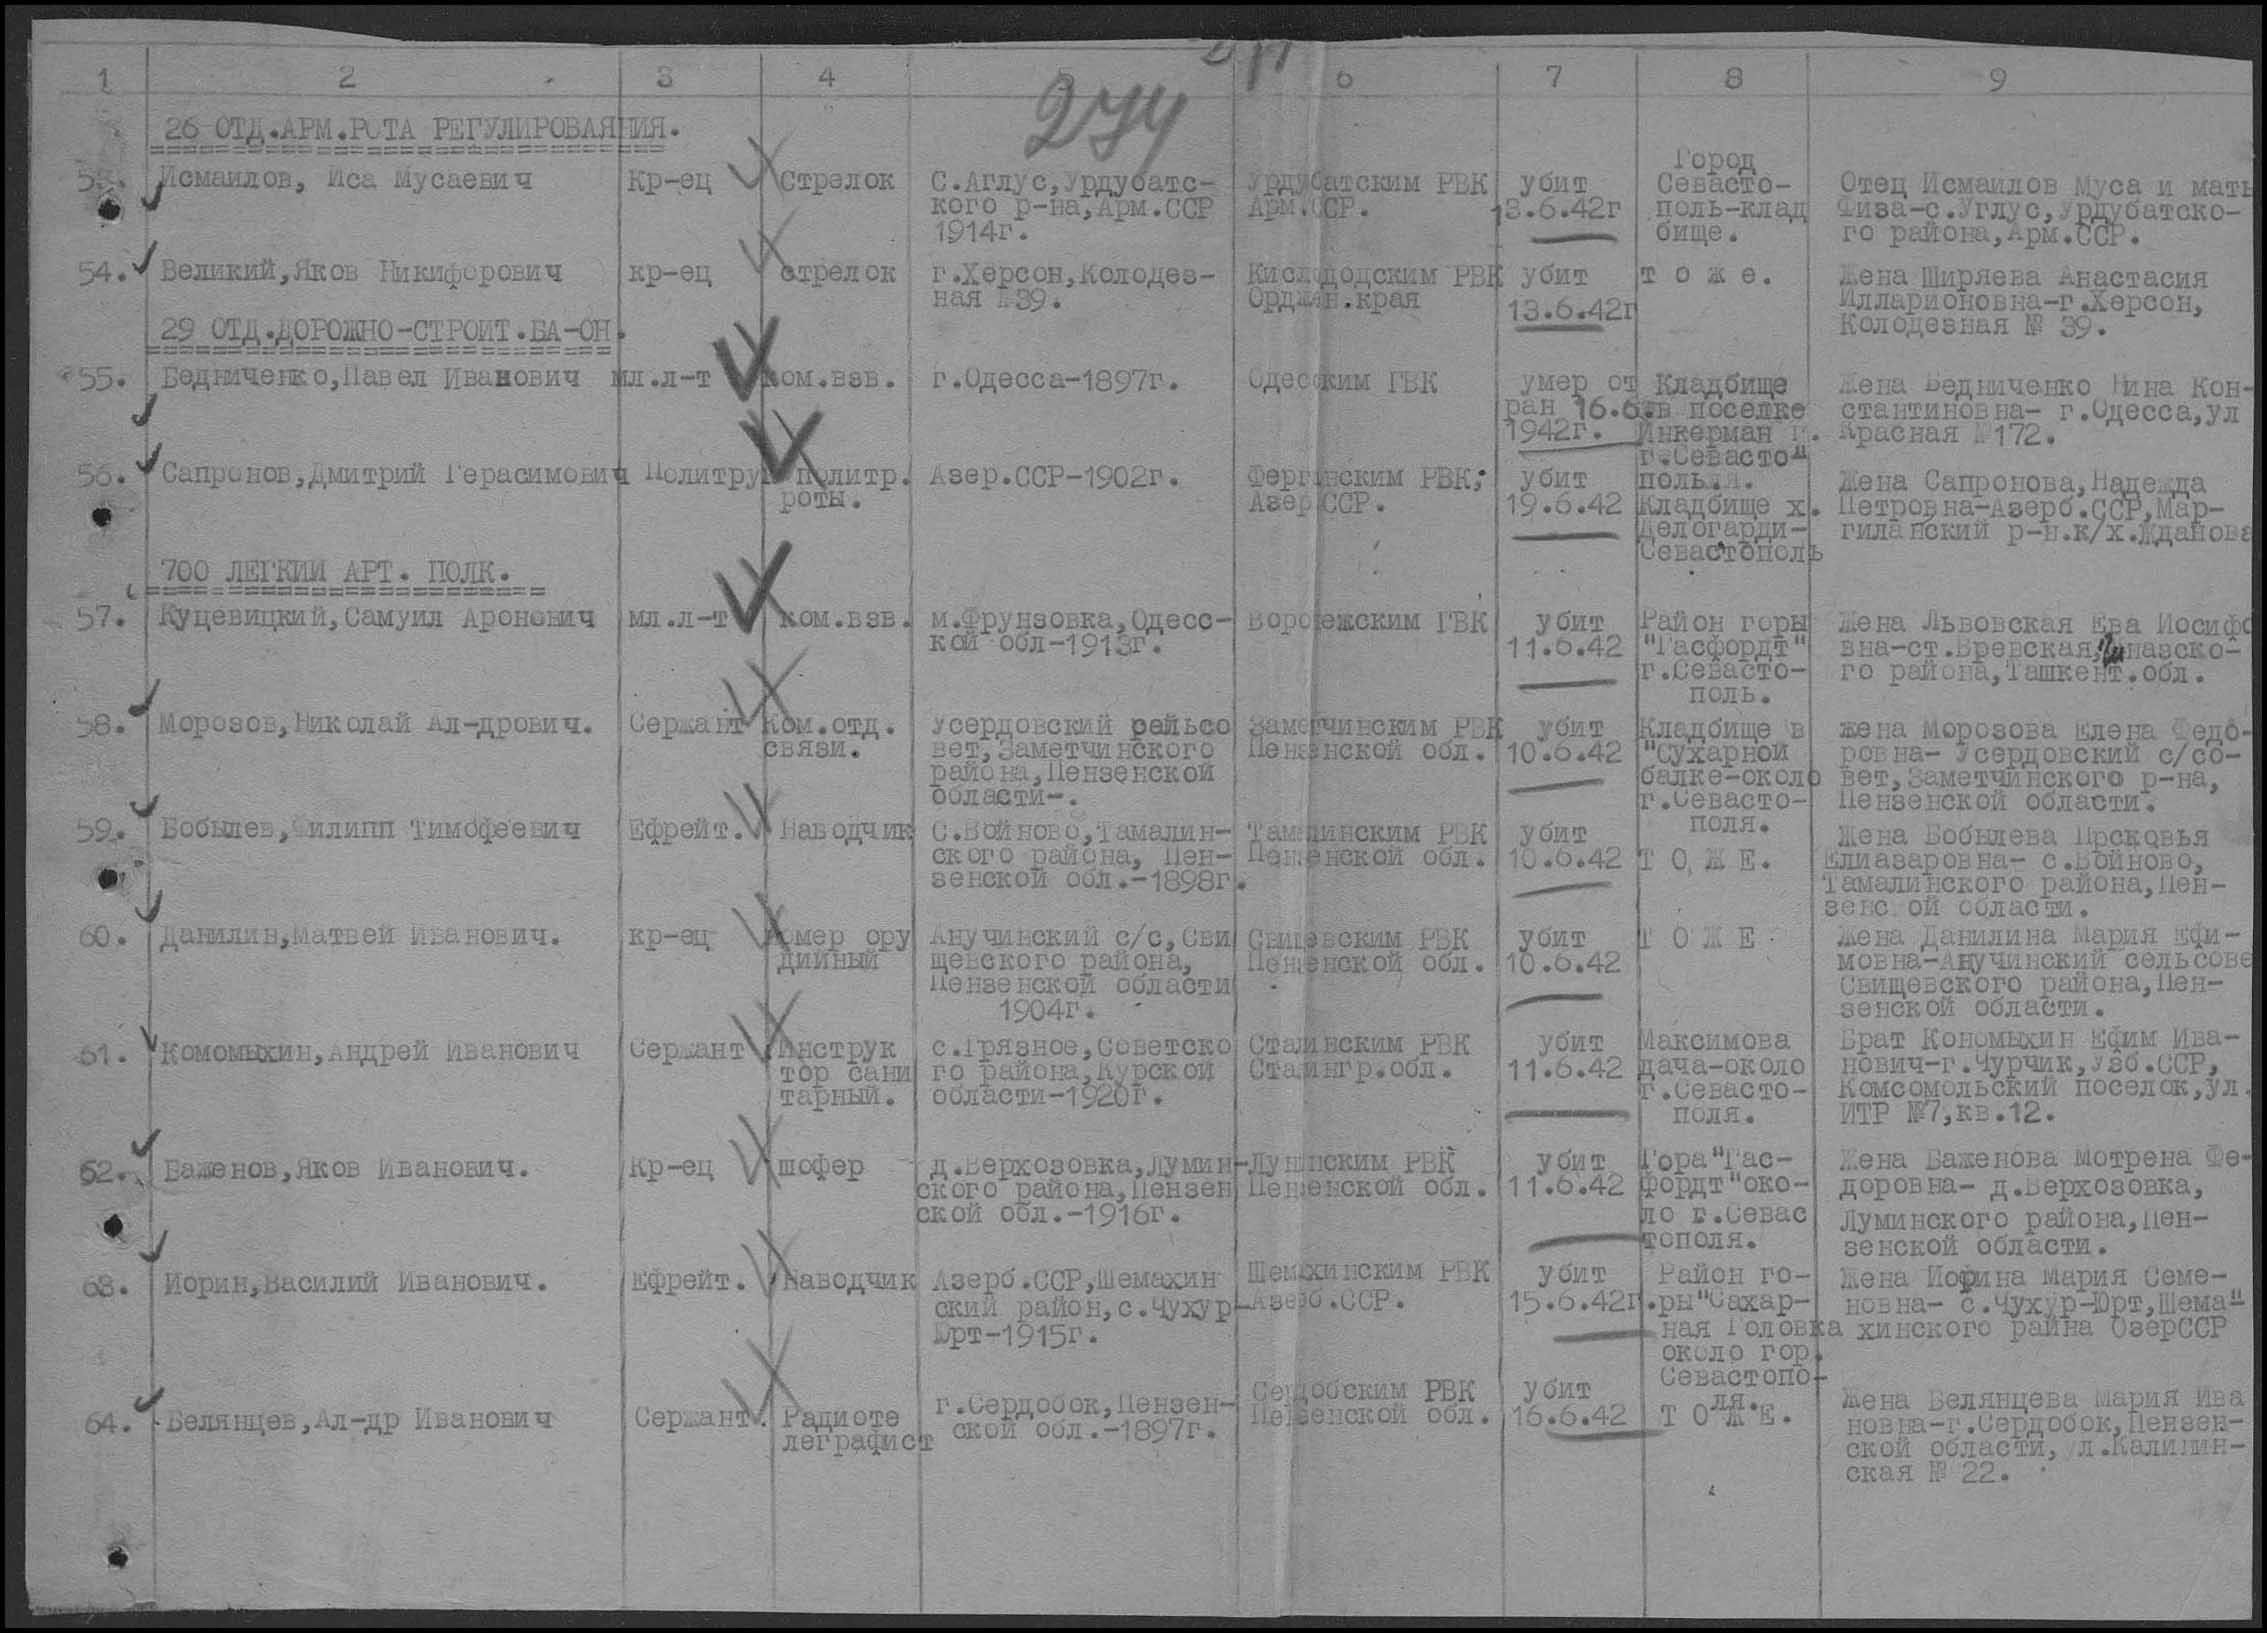 1 2 3 4 5 6 7 8 9
274
26 ОТД.АРМ.РОТА РЕГУЛИРОВАЯНИЯ.
53. Исмаилов, Иса Мусаевич
Кр-ец
Стрелок
С.Аглус,Урдубатс-
кого р-на,Арм.ССР
1914г.
Урдубатским РВК
Арм.ССР.
убит
13.6.42г
Город
Севасто-
поль-клад
бище.
Отец Исмаилов Муса и мать
Физа-с.Углус,Урдубатско-
го района,Арм.ССР.
54. Великий,Яков Никифорович
кр-ец
стрелок
г.Херсон,Колодез-
ная №39.
Кисловодским РВК
Орджен.края
убит
13.6.42г
т о ж е.
Жена Ширяева Анастасия
Илларионовна-г.Херсон,
Колодезная № 39.
29 ОТД.ДОРОЖНО-СТРОИТ.БА-ОН.
55. Бедниченко,Павел Иванович
мл.л-т
ком.взв.
г.Одесса-1897г.
Одесским ГВК
умер от
ран 16.6.
1942г.
Кладбище
в поселке
Инкерман п.
г.Севасто"
поля.
Жена Бедниченко Нина Кон-
стантиновна- г.Одесса,ул
Красная №172.
56. Сапронов,Дмитрий Герасимович
Политрук
политр.
роты.
Азер.ССР-1902г.
Ферганским РВК;
Азер ССР.
убит
19.6.42
Кладбище х.
Делогарди-
Севастополь
Жена Сапронова,Надежда
Петровна-Азерб.ССР,Мар-
гиланский р-н.к/х.Жданова
700 ЛЕГКИЙ АРТ. ПОЛК.
57. Куцевицкий,Самуил Аронович
мл.л-т
ком.взв.
м.Фрунзовка,Одесс-
кой обл-1913г.
Воронежским ГВК
убит
11.6.42
Район горы
"Гасфордт"
г.Севасто-
поль.
Жена Львовская Ева Иосифо
вна-ст.Вревская,Чиназско-
го района,Ташкент.обл.
58. Морозов,Николай Ал-дрович.
Сержант
Ком.отд.
связи.
Усердовский сельсо
вет,Заметчинского
района,Пензенской
области-.
Заметчинским РВК
Пензенской обл.
убит
10.6.42
Кладбище в
"Сухарной
балке-около
г.Севасто-
поля.
жена Морозова Елена Федо-
ровна- Усердовский с/со-
вет,Заметчинского р-на,
Пензенской области.
59. Бобылев,Филипп Тимофеевич
Ефрейт.
Наводчик
С.Войново,Тамалин-
ского района, Пен-
зенской обл.-1898г.
Тамалинским РВК
Пензенской обл.
убит
10.6.42
Т О Ж Е.
Жена Бобылева Прсковья
Елиазаровна- с.Войново,
Тамалинского района,Пен-
зенской области.
60. Данилин,Матвей Иванович.
кр-ец
Номер ору
дийный
Анучинский с/с,Сви
щевского района,
Пензенской области
1904г.
Свищевским РВК
Пензенской обл.
убит
10.6.42
Т О Ж Е
Жена Данилина Мария Ефи-
мовна-Анучинский сельсове
Свищевского района,Пен-
зенской области.
61. Комомыхин,Андрей Иванович
Сержант
Инструк
тор сани
тарный.
с.Грязное,Советско
го района,Курской
области-1920г.
Сталинским РВК
Сталингр.обл.
убит
11.6.42
Максимова
дача-около
г.Севасто-
поля.
Брат Кономыхин Ефим Ива-
нович-г.Чурчик,Узб.ССР,
Комсомольский поселок,ул.
ИТР №7,кв.12.
62. Баженов,Яков Иванович.
Кр-ец
шофер
д.Верхозовка,Лумин-
ского района,Пензен
ской обл.-1916г.
Лунинским РВК
Пензенской обл.
убит
11.6.42
Гора"Гас-
фордт"око-
ло г.Севас
тополя.
Жена Баженова Мотрена Фе-
доровна- д.Верхозовка,
Луминского района,Пен-
зенской области.
63. Иорин,Василий Иванович.
Ефрейт.
Наводчик
Азерб.ССР,Шемахин
ский район,с.Чухур-
Юрт-1915г.
Шемахинским РВК
Азерб.ССР.
убит
15.6.42г.
Район го-
ры"Сахар-
ная Головка
около гор.
Севастопо-
ля.
Жена Иорина Мария Семе-
новна- с.Чухур-Юрт,Шема"
хинского райна ОзерССР
64. Белянцев,Ал-др Иванович
Сержант.
Радиоте
леграфист
г.Сердобок,Пензен-
ской обл.-1897г.
Сердобским РВК
Пензенской обл.
убит
16.6.42
Т О Ж Е.
Жена Белянцева Мария Ива
новна-г.Сердобок,Пензен-
ской области,ул.Калинин-
ская № 22.